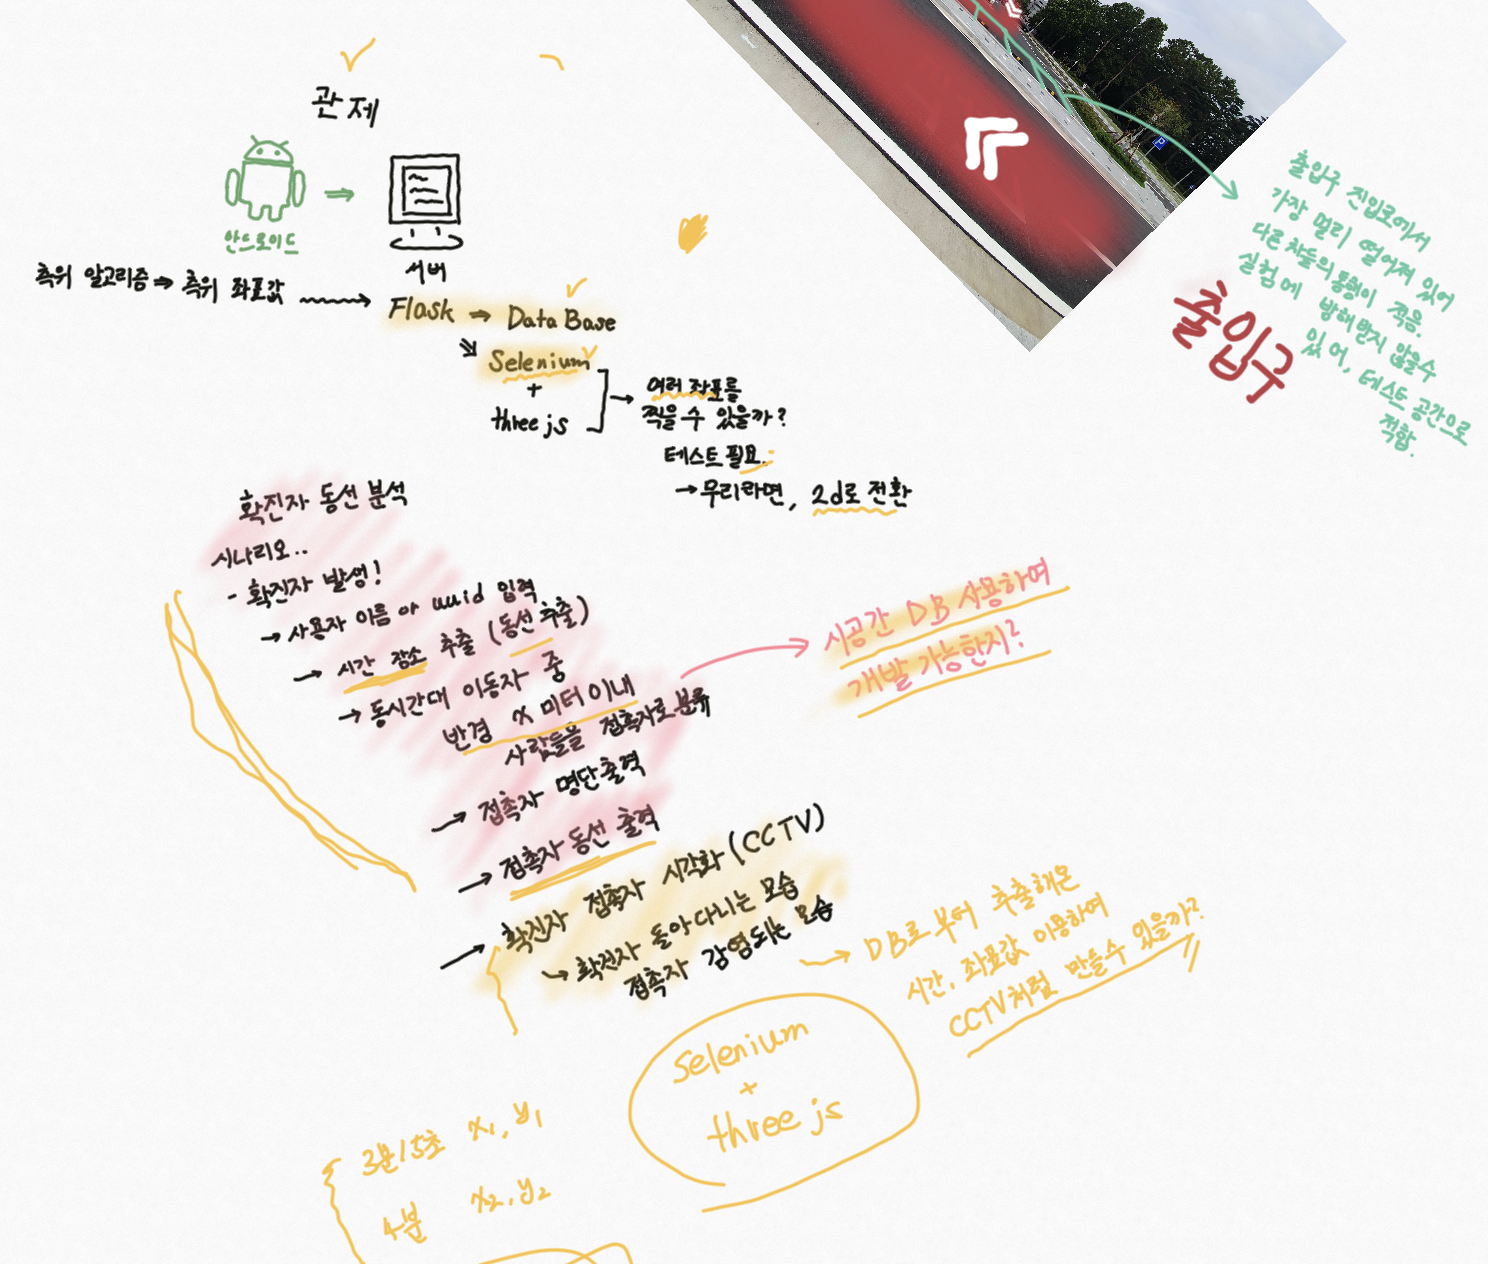 관제
안드로이드
서버
측위 알고리즘 ⇒ 측위 좌표값
Flask ⇒ DataBase
Selenium
+
three js
여러 좌표를
찍을 수 있을까?
테스트 필요.
→ 무리라면, 2d로 전환
출입구 진입로에서
가장 멀리 떨어져 있어
다른 차들의 통행이 적음.
실험에 방해받지 않을수
있어, 테스트 공간으로
적합.
출입구
P
확진자 동선 분석
시나리오..
- 확진자 발생!
→ 사용자 이름 or uuid 입력
→ 시간 장소 추출 (동선 추출)
→ 동시간대 이동자 중
반경 x 미터 이내
사람들을 접촉자로 분류
→ 접촉자 명단출력
→ 접촉자 동선 출력
시공간 DB 사용하여
개발 가능한지?
→ 확진자 접촉자 시각화 (CCTV)
↳ 확진자 돌아다니는 모습
접촉자 감염되는 모습
→ DB로부터 추출해온
시간, 좌표값 이용하여
CCTV처럼 만들수 있을까?
Selenium
+
three js
3분15초 x1, y1
4분 x2, y2